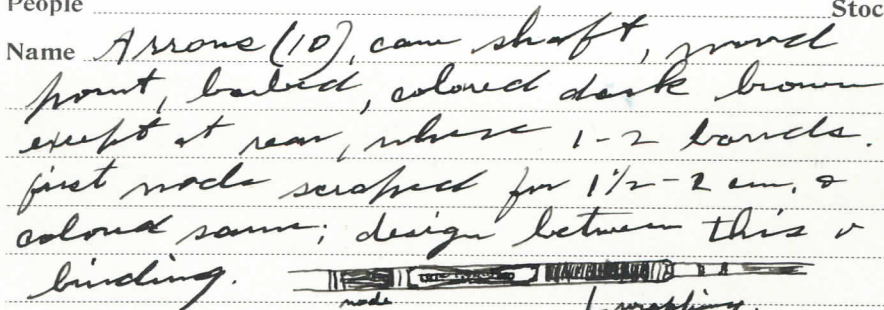 People Stoc
Name Arrows (10), cane shaft, wood
point, barbed, colored dark brown
except at rear, where 1-2 bands.
first node scraped for 1½-2 cm, &
colored same; design between this &
binding.
node wrapping.